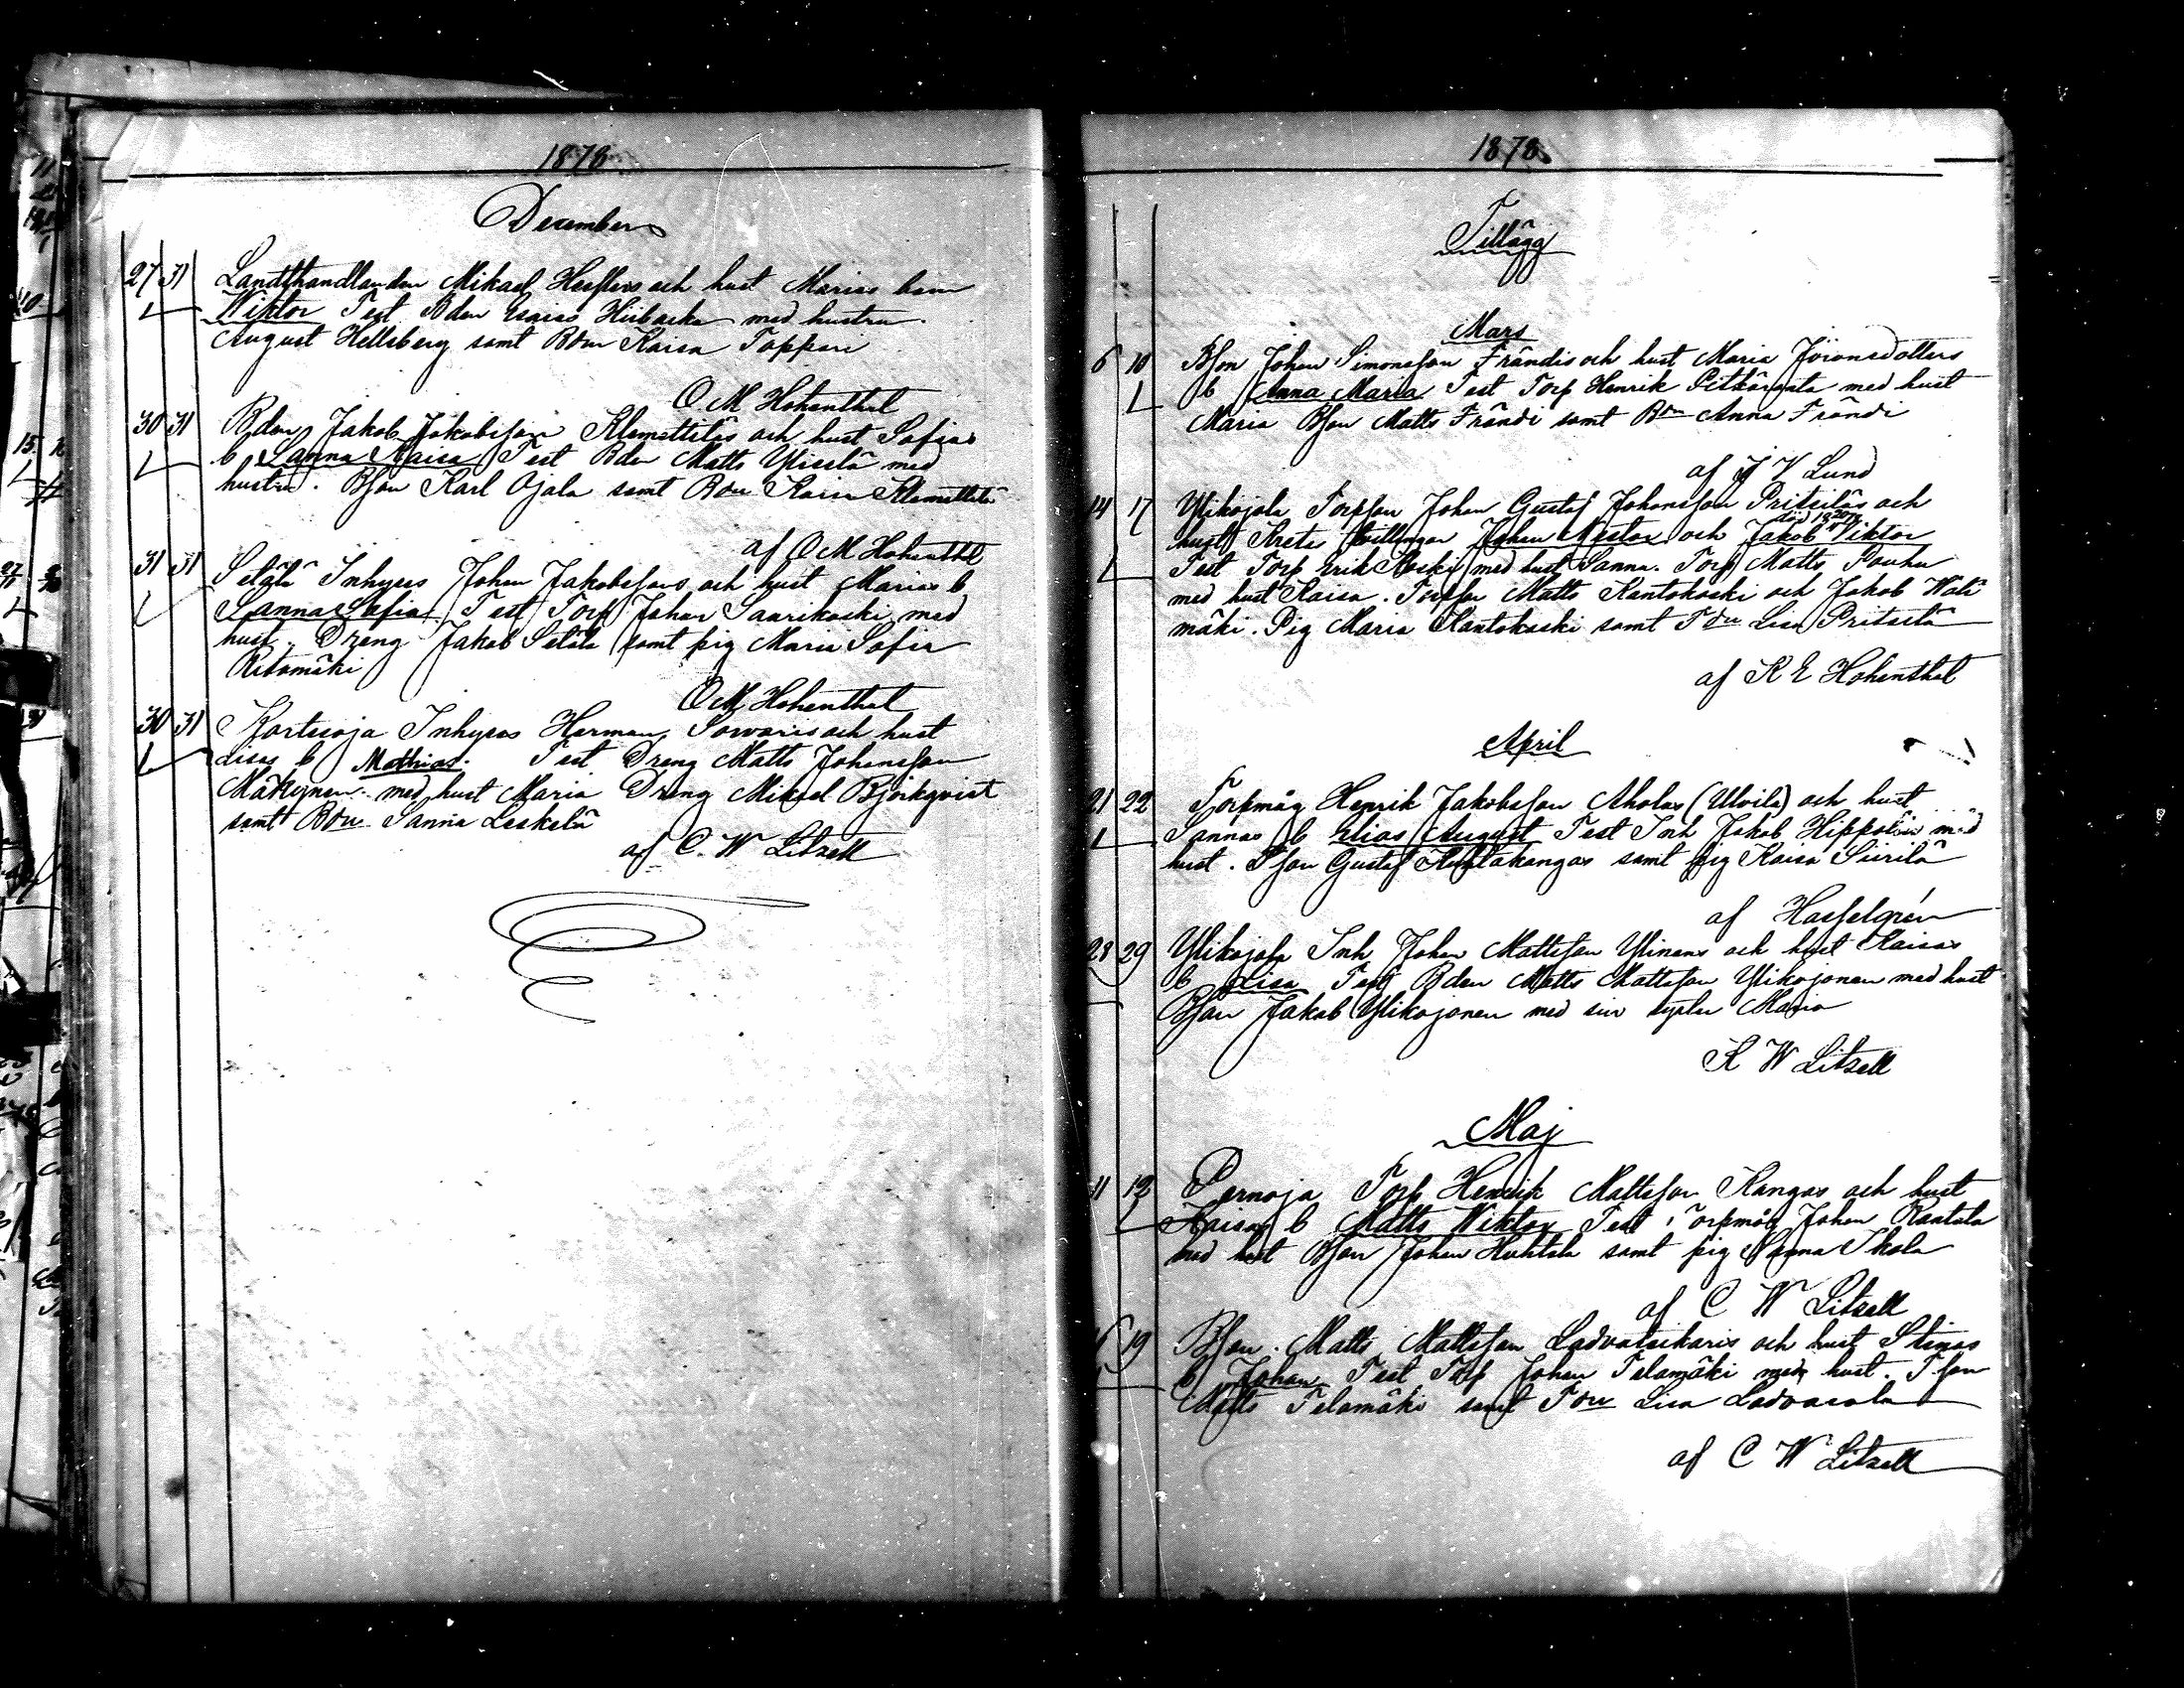 1878
December
27 31 Landthandlanden Mikael och hust Marias barn
Wiktor Test Bden Esaias Hirbacka med hustru.
August Hellsberg samt Bdtr Kaisa Toppari
O. M Hohenthal
30 31 Bden Jakob Jakobsson Klemettiläs och hust Sofias
b Sanna Kaisa Test Bden Matts Ylisela med
hustru. Bson Karl Ojala samt Bdtr Kaisa Klemettilä
af O M Hohenthal
31 31 Setälä Inhyses Johan Jakobssons och hust Marias b
Sanna Sofia Test Torp Johan Saarikoski med
hust. Dreng Jakob Setälä samt pig Maria Sofia
Ritamäki
O M Hohenthal
30 31 Kortesoja Inhyses Herman Sowaris och hust
Lisas b Mathias. Test Dreng Matts Johansson
Mäkynen med hust Maria Dreng Mikael Björkqvist
samt Bdtr Sanna Leskelä
af C. W Litzell
1878
Tillägg
Mars
6 10 Bson Johan Simonsson Frändis och hust Maria Jöransdotters
b Anna Maria Test Torp Henrik Pitkäranta med hust
Maria Bson Matts Frändi samt Bdtr Anna Frändi
af J V Lund
14 17 Ylikojola Torpson Johan Gustaf Johansson Pritsiläs och
död 19
hust Greta tvillingar Johan Nestor och Jakob Viktor
Test Torp Erik Koski med hust Sanna. Torp Matts Pouhu
med hust Kaisa. Torpson Matts Kantokoski och Jakob Wali
mäki. Pig Maria Kantokoski samt Tdtr Lisa Pritsilä
af K E Hohenthal
April
21 22 Torpmåg Henrik Jakobsson Aholas (Ulvila) och hust
Sannas b Elias August Test Inh Jakob Hippoläin med
hust. Tson Gustaf Huhtakangas samt pig Kaisa Siirilä
af Hasselgrén
28 29 Ylikojola Inh Johan Mattsson Ylinens och hust Kaisas
b Lisa Test Bden Matts Mattsson Ylikojonen med hust
Bson Jakob Ylikojonen med sin syster Maria
K W Litzell
Maj
11 12 Pernoja Torp Henrik Mattsson Kangas och hust
Kaisas b Matts Wiktor Test Torpmåg Johan Rantala
med hust Bson Johan Huhtala samt pig Sanna Skola
af C W Litzell
16 19 Bson Matts Mattsson Ladvalsikaris och hust Stinas
b Johan Test Torp Johan Telamäki med hust. T.son
Matts Telamäki samt Tdtr Lisa Ladvaala
af C W Litzell